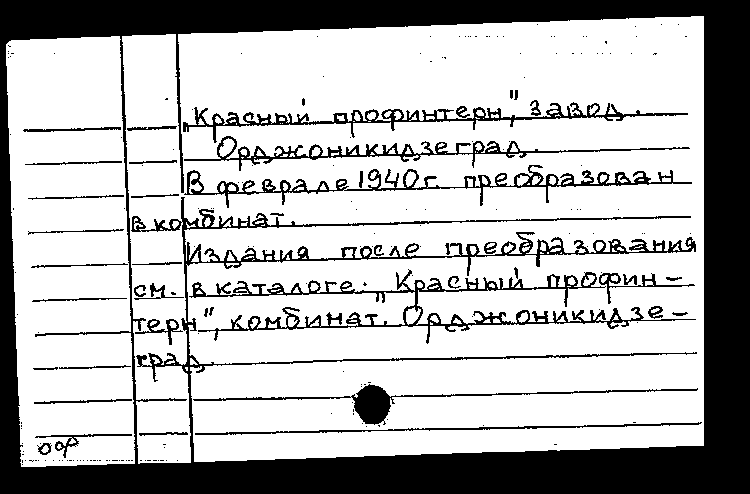 „Красный профинтерн", завод.
Орджоникидзеград.
В феврале 1940 г. преобразован
в комбинат.
Издания после преобразования
см. в каталоге: „Красный профин-
терн", комбинат. Орджоникидзе-
град.
офр